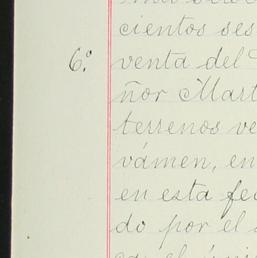 cientos ses
6.° venta del
ñor Mart
terrenos ve
vámen, en
en esta fec
do por el